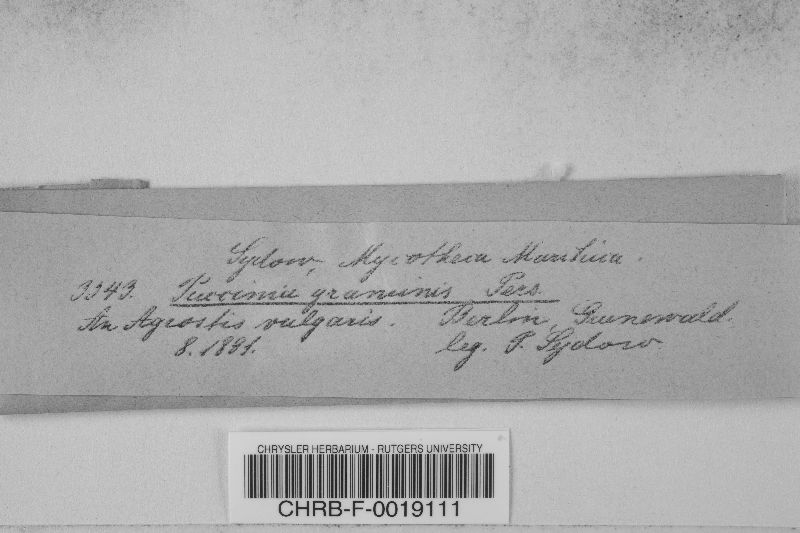 Sydow, Mycotheca Marchica.
3343. Puccinia graminis Pers.
An Agrostis vulgaris. Berlin, Grunewald.
8. 1891. leg. P. Sydow
CHRYSLER HERBARIUM - RUTGERS UNIVERSITY
CHRB-F-0019111